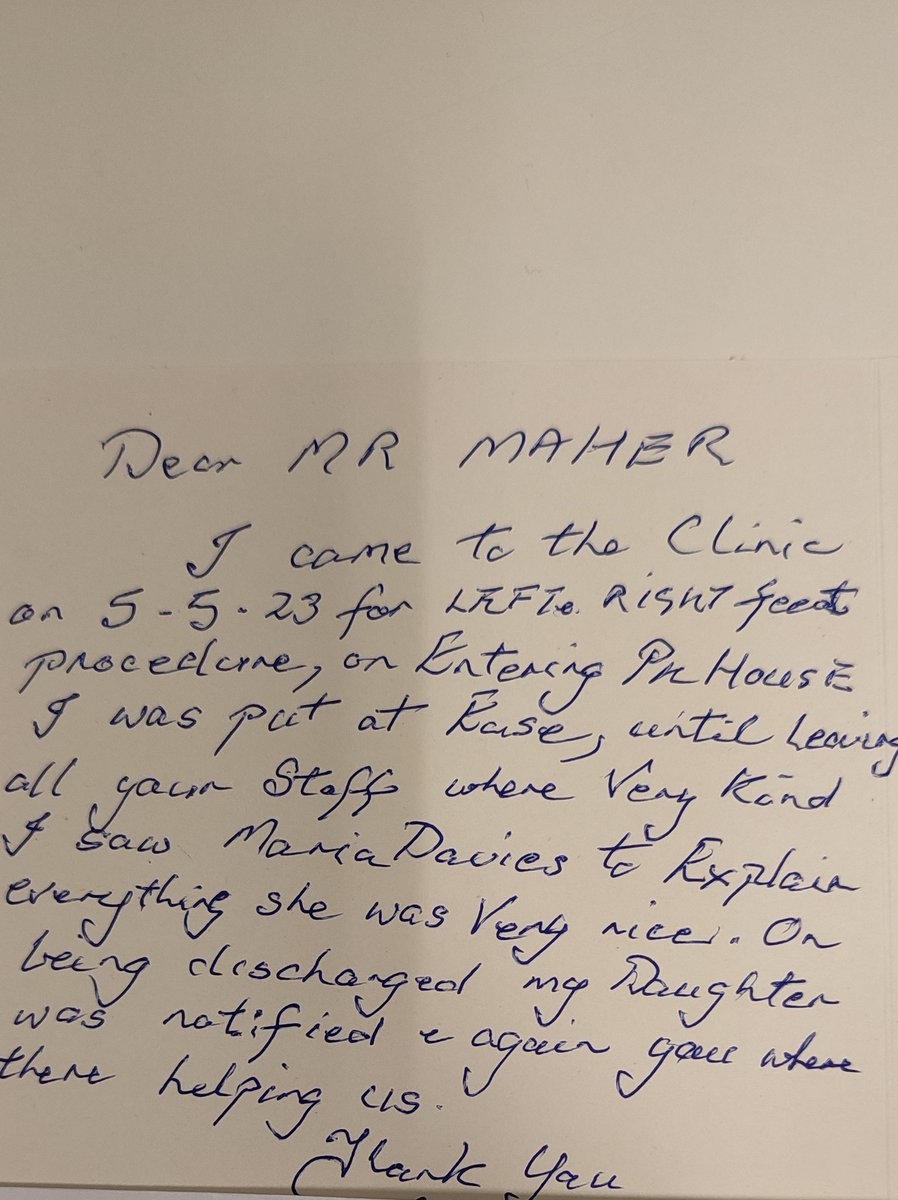 Dear MR MAHER
I came to the Clinic
on 5-5-23 for LEFT & RIGHT feet
procedure, on Entering House
I was put at Ease, until Leaving
all your Staff where Very Kind
I saw Maria Davies to Explain
everything she was Very nice. On
being discharged my Daughter
was notified & again you where
there helping us.
Thank You